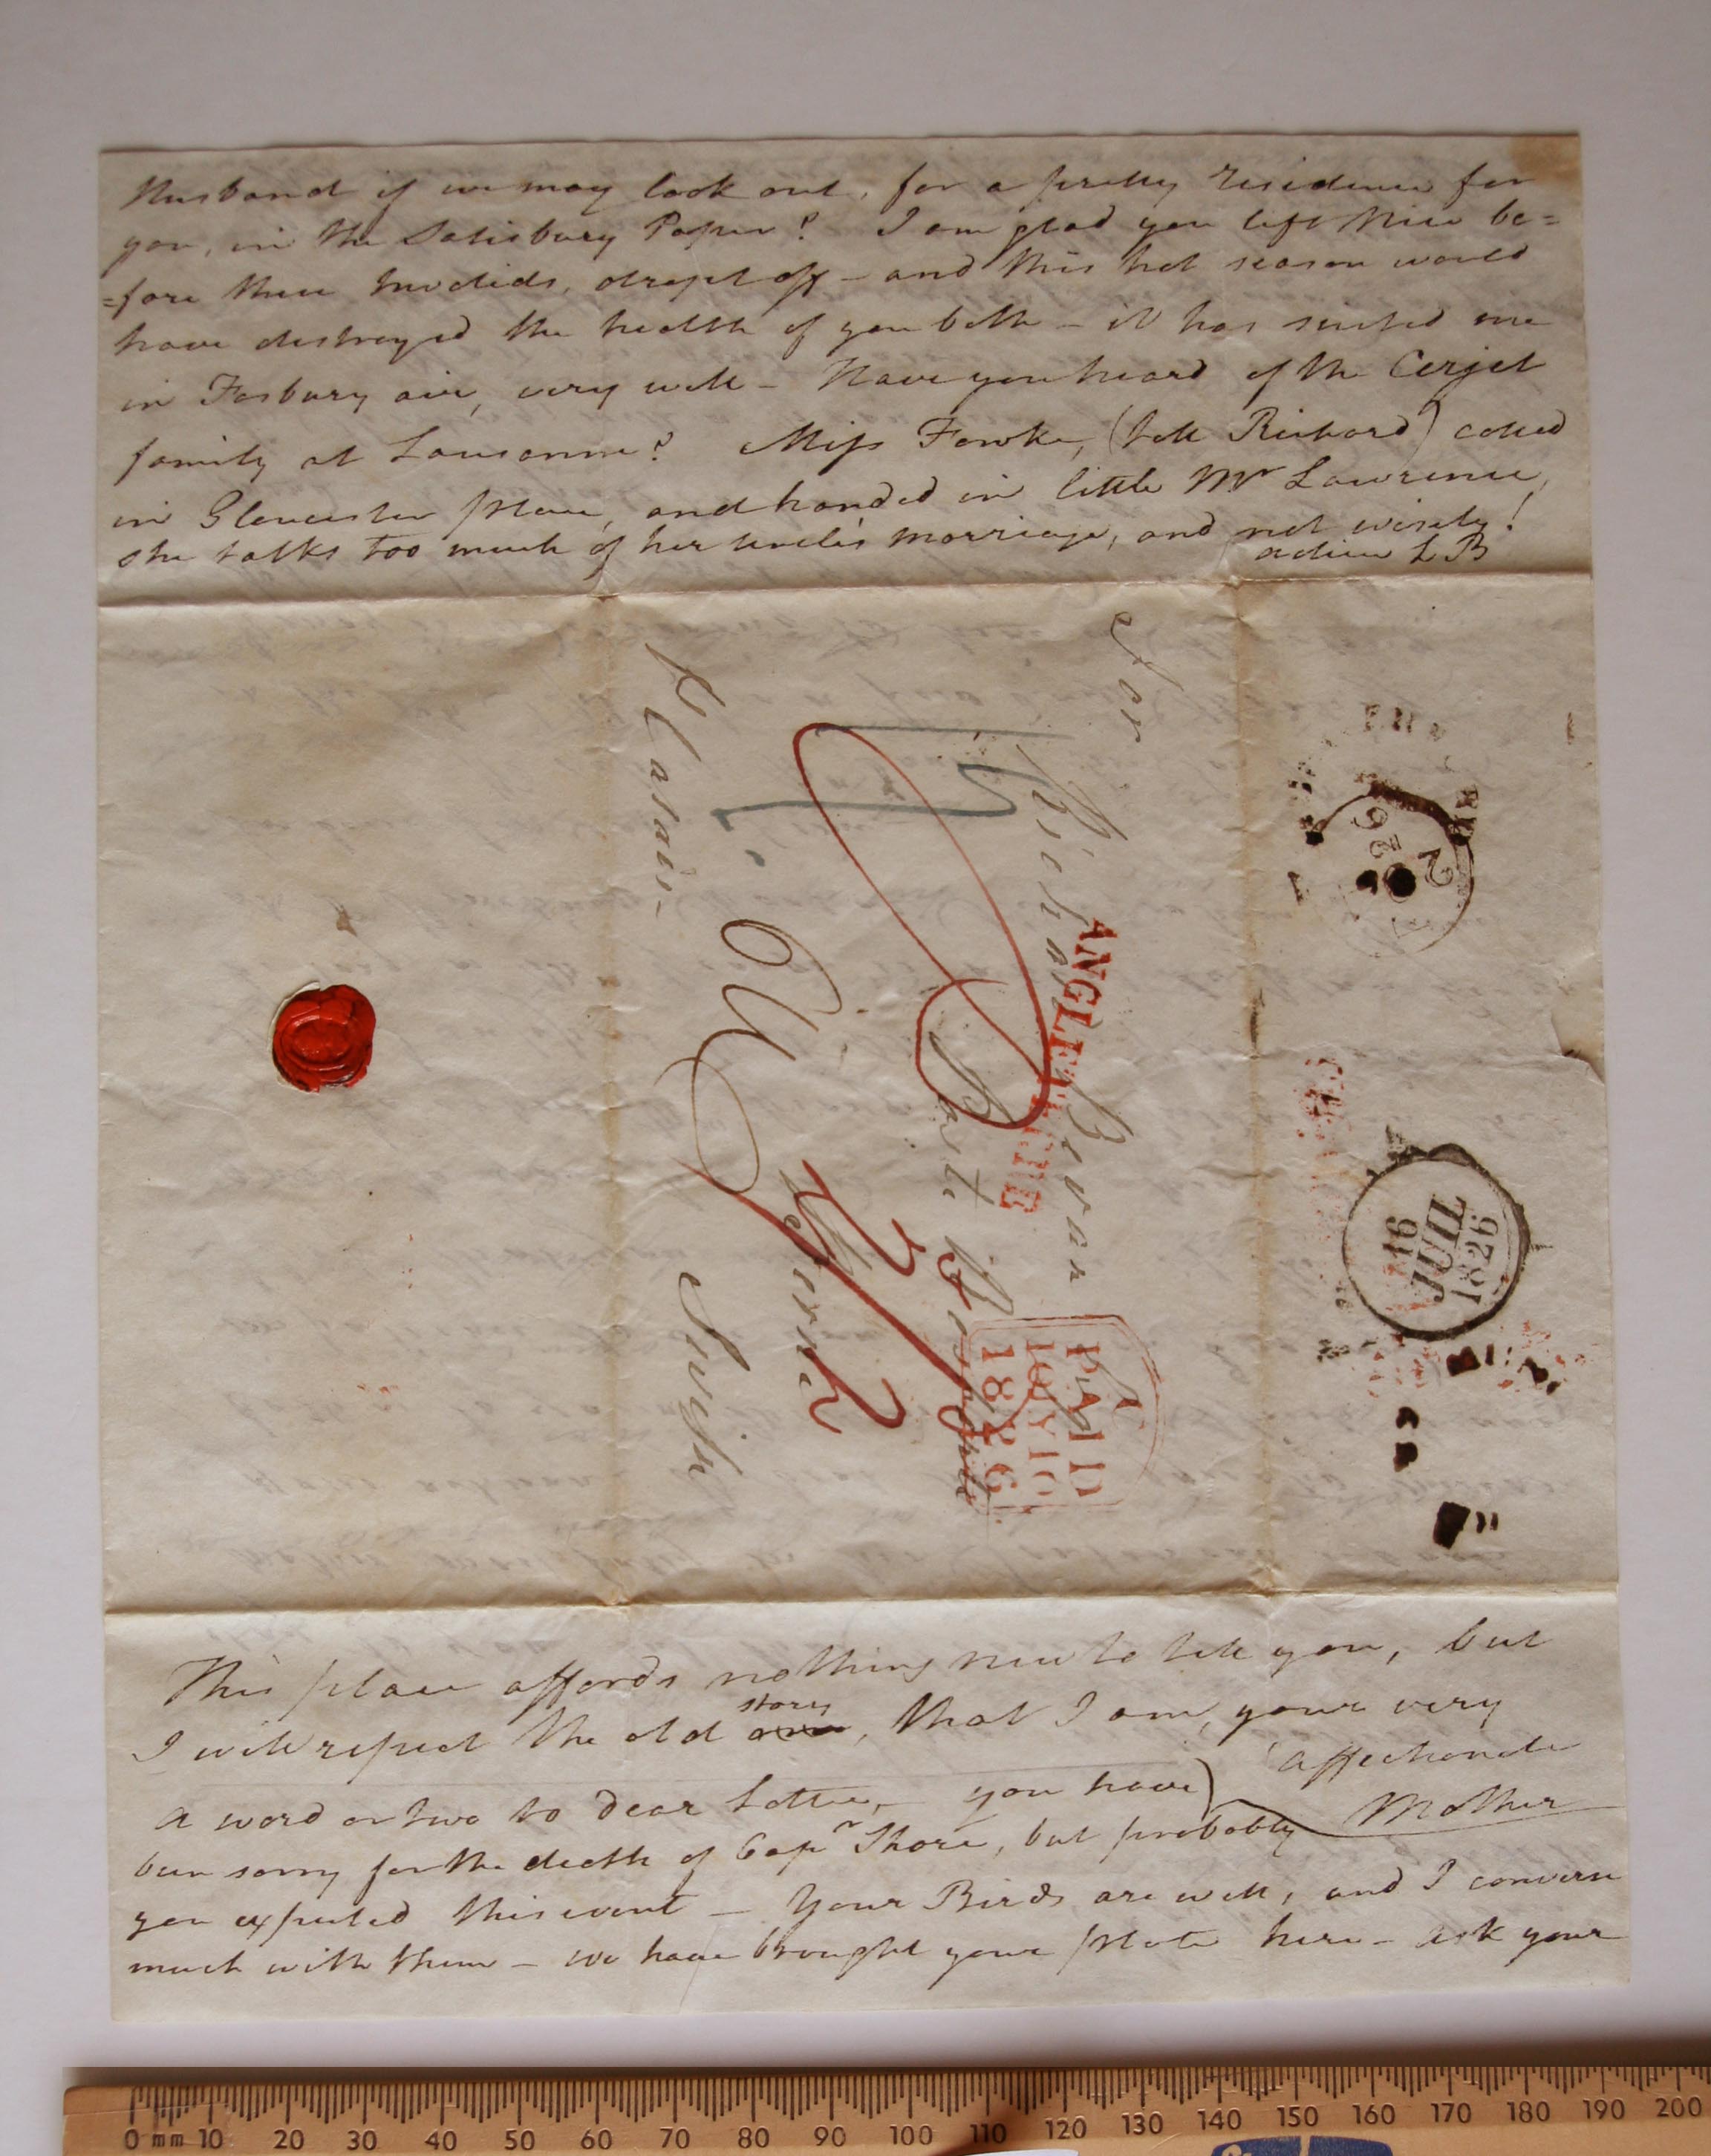 Husband if we may look out, for a pretty residence for
you, in the Salisbury Paper? I am glad you left Nice be=
=fore these Invalids, dropt off – and this hot season would
have destroyed the health of you both – it has suited me
in Fosbury air, very well – Have you heard of the Cerjet
family at Lausanne? Miss Fowke, (tell Richard) called
in Gloucester place, and handed in little Mr Lawrence,
she talks too much of her uncle's marriage, and not wisely!
adieu LB
For
Richard Bevan
Poste Restante
Berne
Swiss
ANGLETERRE
PAID
10 JY 10
1826
26
16
JUIL
1826
This place affords nothing new to tell you, but
I will repeat the old one story, that I am, your very
affectionate
Mother
A word or two to dear Lottie, – you have
been sorry for the death of Capn Shore, but probably
you expected this event – Your Birds are well, and I converse
much with them – we have brought your plate here – ask your
0 mm 10 20 30 40 50 60 70 80 90 100 110 120 130 140 150 160 170 180 190 200